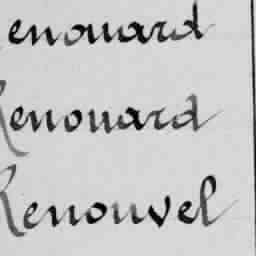 Renouard
Renouard
Renouvel